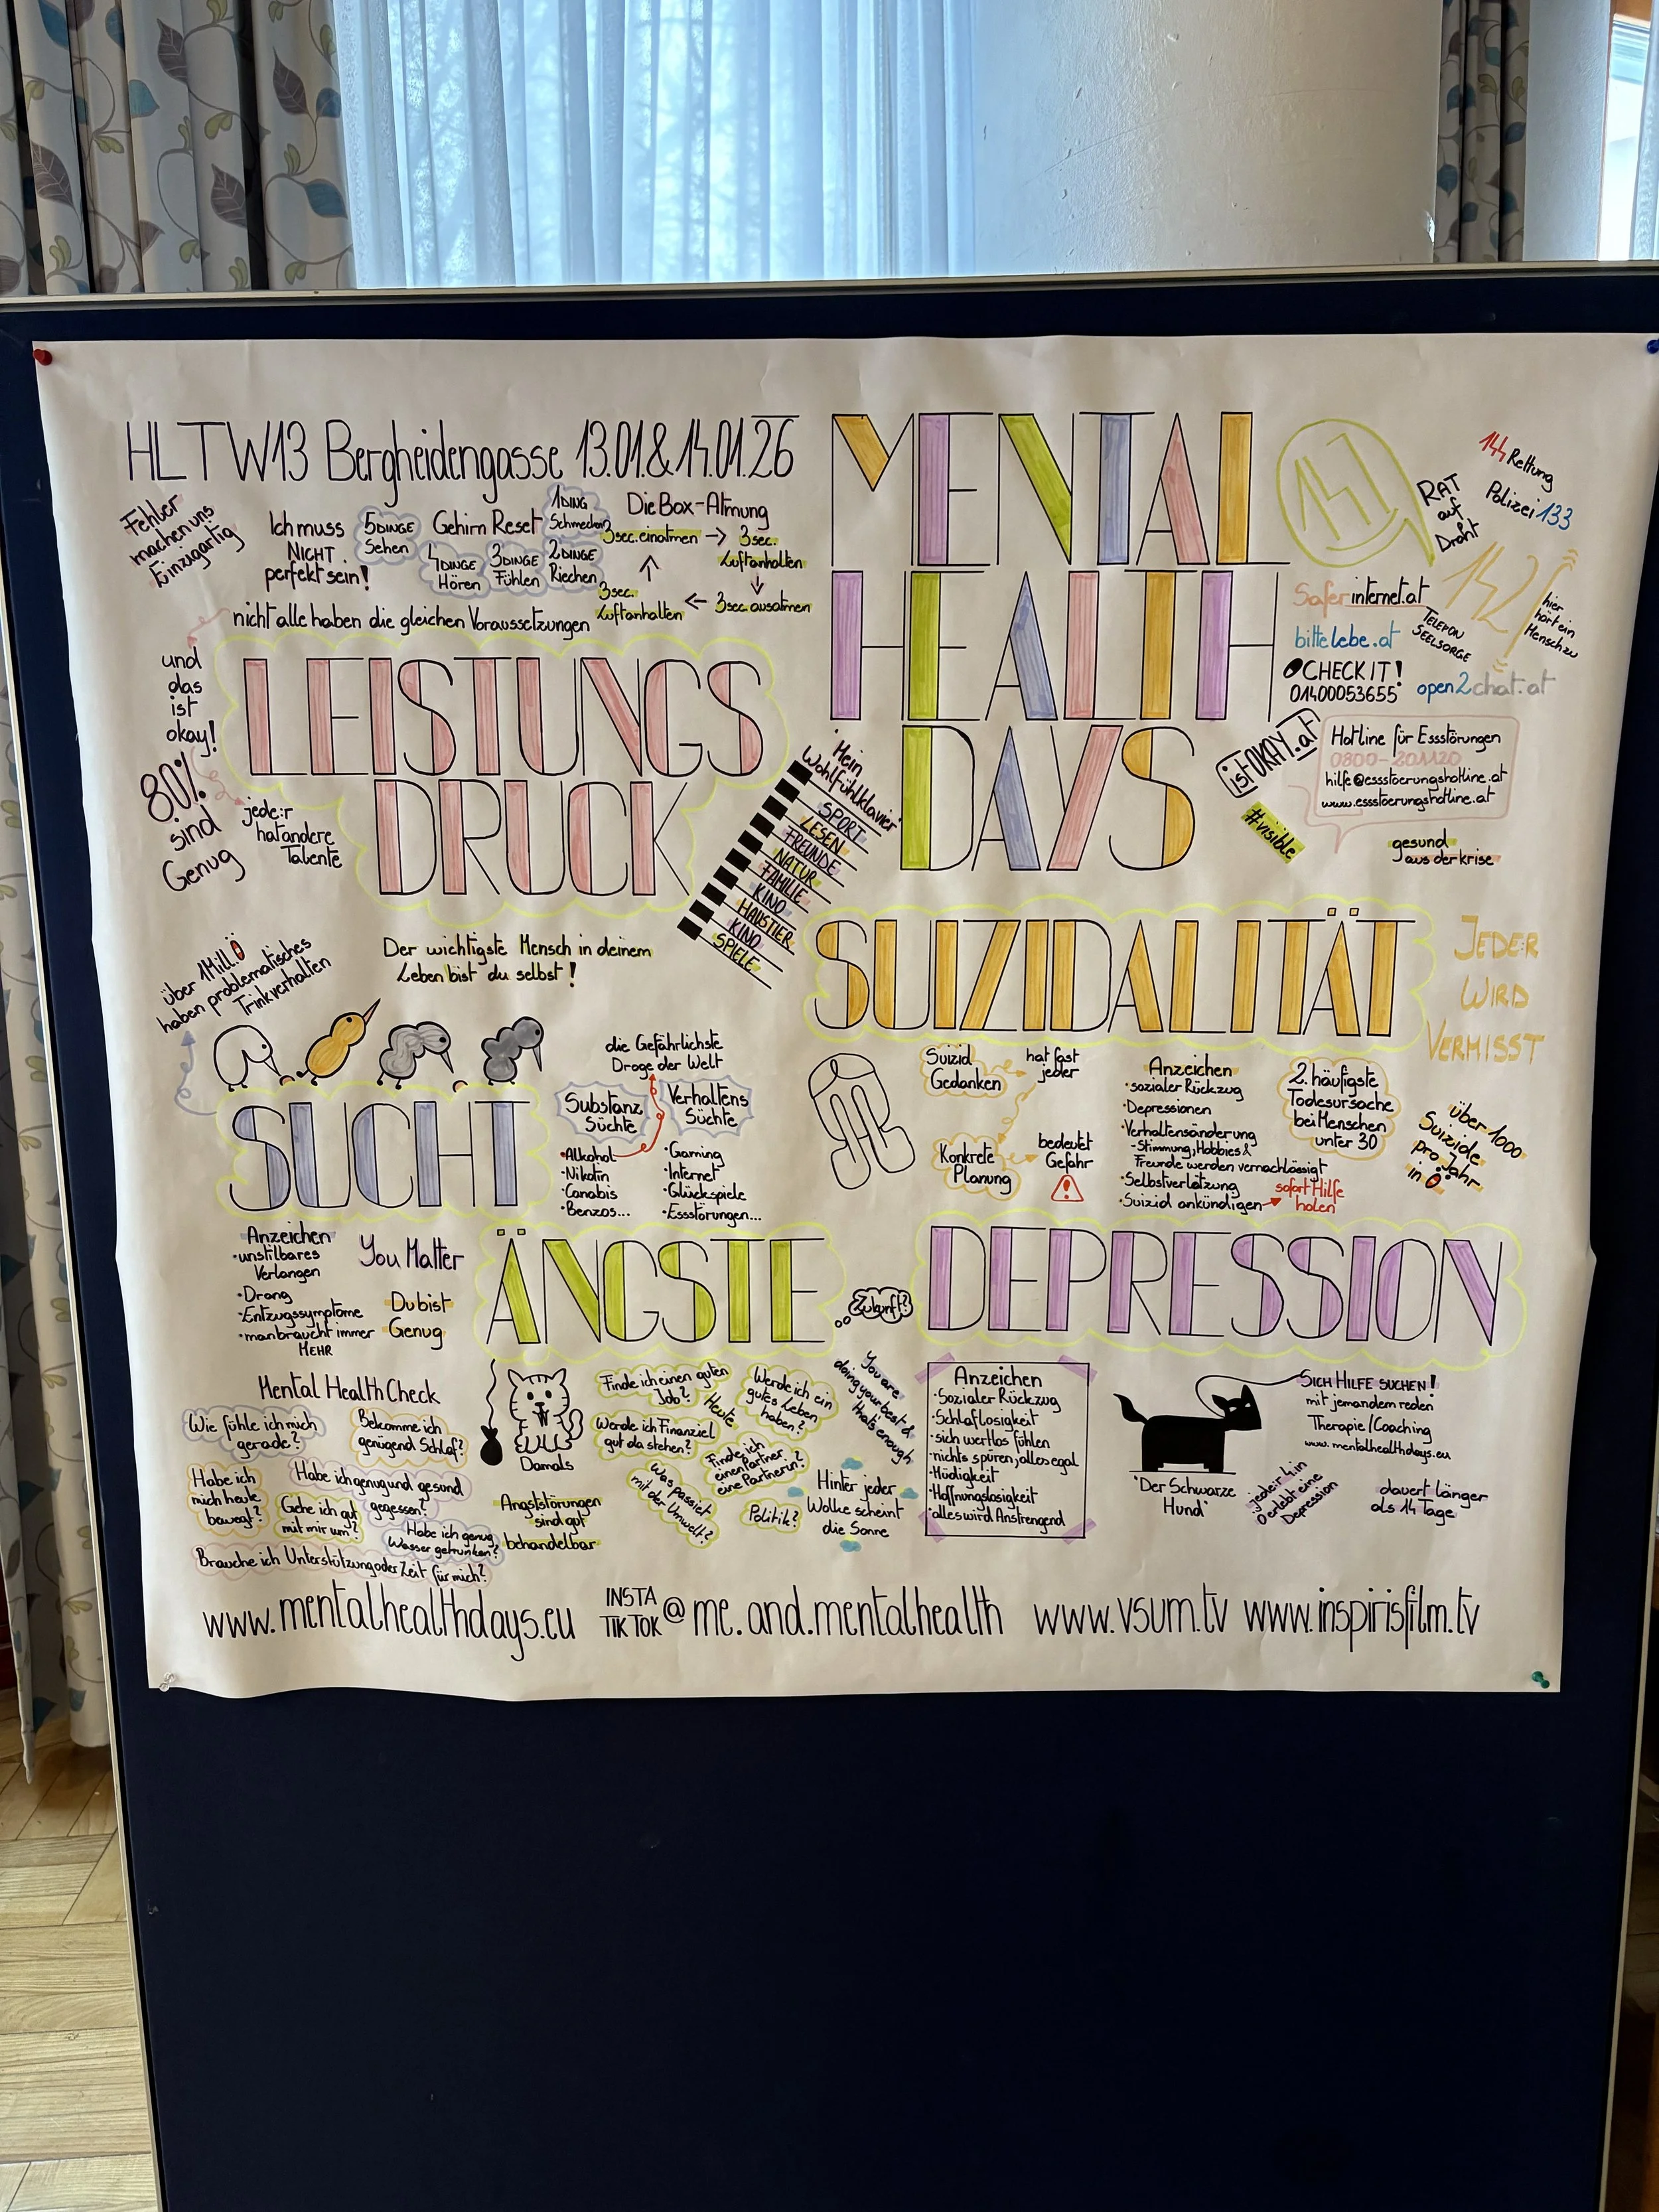 HLTW13 Bergheidengasse 13.01.&14.01.26
MENTAL
HEALTH
DAYS
147
RAT
auf
Draht
144 Rettung
Polizei 133
142
hier
hört ein
Mensch zu
TELEFON
SEELSORGE
Saferinternet.at
bittelebe.at
CHECK IT!
01400053655
open2chat.at
istOKAY.at
#visible
Hotline für Essstörungen
0800-201120
hilfe@essstoerungshotline.at
www.essstoerungshotline.at
gesund
aus der krise
Fehler
machen uns
Einzigartig
Ich muss
NICHT
perfekt sein!
Gehirn Reset
5 DINGE
Sehen
4 DINGE
Hören
3 DINGE
Fühlen
2 DINGE
Riechen
1 DING
Schmecken
Die Box-Atmung
3sec. einatmen
3 sec.
Luftanhalten
3sec. ausatmen
3sec.
Luftanhalten
nicht alle haben die gleichen Voraussetzungen
und
das
ist
okay!
LEISTUNGS
DRUCK
80%
sind
Genug
jede:r
hat andere
Talente
Mein
Wohlfühlklavier
SPORT
LESEN
FREUNDE
NATUR
FAMILIE
KINO
HAUSTIER
KINO
SPIELE
Der wichtigste Mensch in deinem
Leben bist du selbst!
SUIZIDALITÄT
JEDE:R
WIRD
VERMISST
Suizid
Gedanken
hat fast
jeder
Konkrete
Planung
bedeutet
Gefahr
Anzeichen
·sozialer Rückzug
·Depressionen
·Verhaltensänderung
-Stimmung, Hobbies &
Freunde werden vernachlässigt
·Selbstverletzung
·Suizid ankündigen
sofort Hilfe
holen
2. häufigste
Todesursache
bei Menschen
unter 30
über 1000
Suizide
pro Jahr
in Ö
über 1 Mill. Ö
haben problematisches
Trinkverhalten
SUCHT
die Gefährlichste
Droge der Welt
Substanz
Süchte
·Alkohol
·Nikotin
·Canabis
·Benzos...
Verhaltens
Süchte
·Gaming
·Internet
·Glückspiele
·Essstörungen...
Anzeichen
·unstilbares
Verlangen
·Drang
·Entzugssymptome
·man braucht immer
MEHR
You Matter
Du bist
Genug
ÄNGSTE
Zukunft?
DEPRESSION
Mental Health Check
Wie fühle ich mich
gerade?
Bekomme ich
genügend Schlaf?
Habe ich
mich heute
bewegt?
Habe ich genug und gesund
gegessen?
Gehe ich gut
mit mir um?
Habe ich genug
Wasser getrunken?
Brauche ich Unterstützung oder Zeit für mich?
Damals
Heute
Angststörungen
sind gut
behandelbar
Finde ich einen guten
Job?
Werde ich ein
gutes Leben
haben?
Werde ich Finanziel
gut da stehen?
Finde ich
einen Partner,
eine Partnerin?
Was passiert
mit der Umwelt?
Politik?
You are
doing your best &
that's enough
Hinter jeder
Wolke scheint
die Sonne
Anzeichen
·Sozialer Rückzug
·Schlaflosigkeit
·sich wertlos fühlen
·nichts spüren, alles egal
·Müdigkeit
·Hoffnungslosigkeit
·alles wird Anstrengend
"Der Schwarze
Hund"
SICH HILFE SUCHEN!
mit jemandem reden
Therapie/Coaching
www.mentalhealthdays.eu
jede:r 4. in
Ö erlebt eine
Depression
dauert länger
als 14 Tage
www.mentalhealthdays.eu
INSTA
TIKTOK
@me.and.mentalhealth
www.vsum.tv
www.inspirisfilm.tv